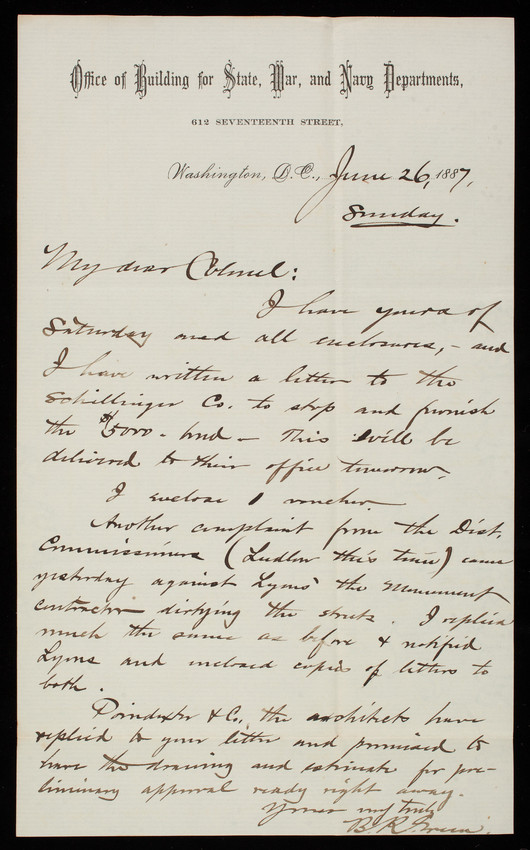 Office of Building for State, War, and Navy Departments,
612 SEVENTEENTH STREET,
Washington, D.C., June 26, 1887,
Sunday.
My dear Colonel:
I have yours of
Saturday and all enclosures, - and
I have written a letter to the
Schillinger Co. to stop and furnish
the $5000- bond - This will be
delivered to their office tomorrow.
I enclose 1 voucher.
Another complaint from the Dist.
Commissioners (Ludlow this time) came
yesterday against Lyons the Monument
contractor dirtying the streets. I replied
much the same as before & notified
Lyons and enclosed copies of letters to
both.
Poindexter & Co., the architects have
replied to your letter and promised to
have the drawing and estimate for pre-
liminary approval ready right away.
Yours very truly
B. R. Green.